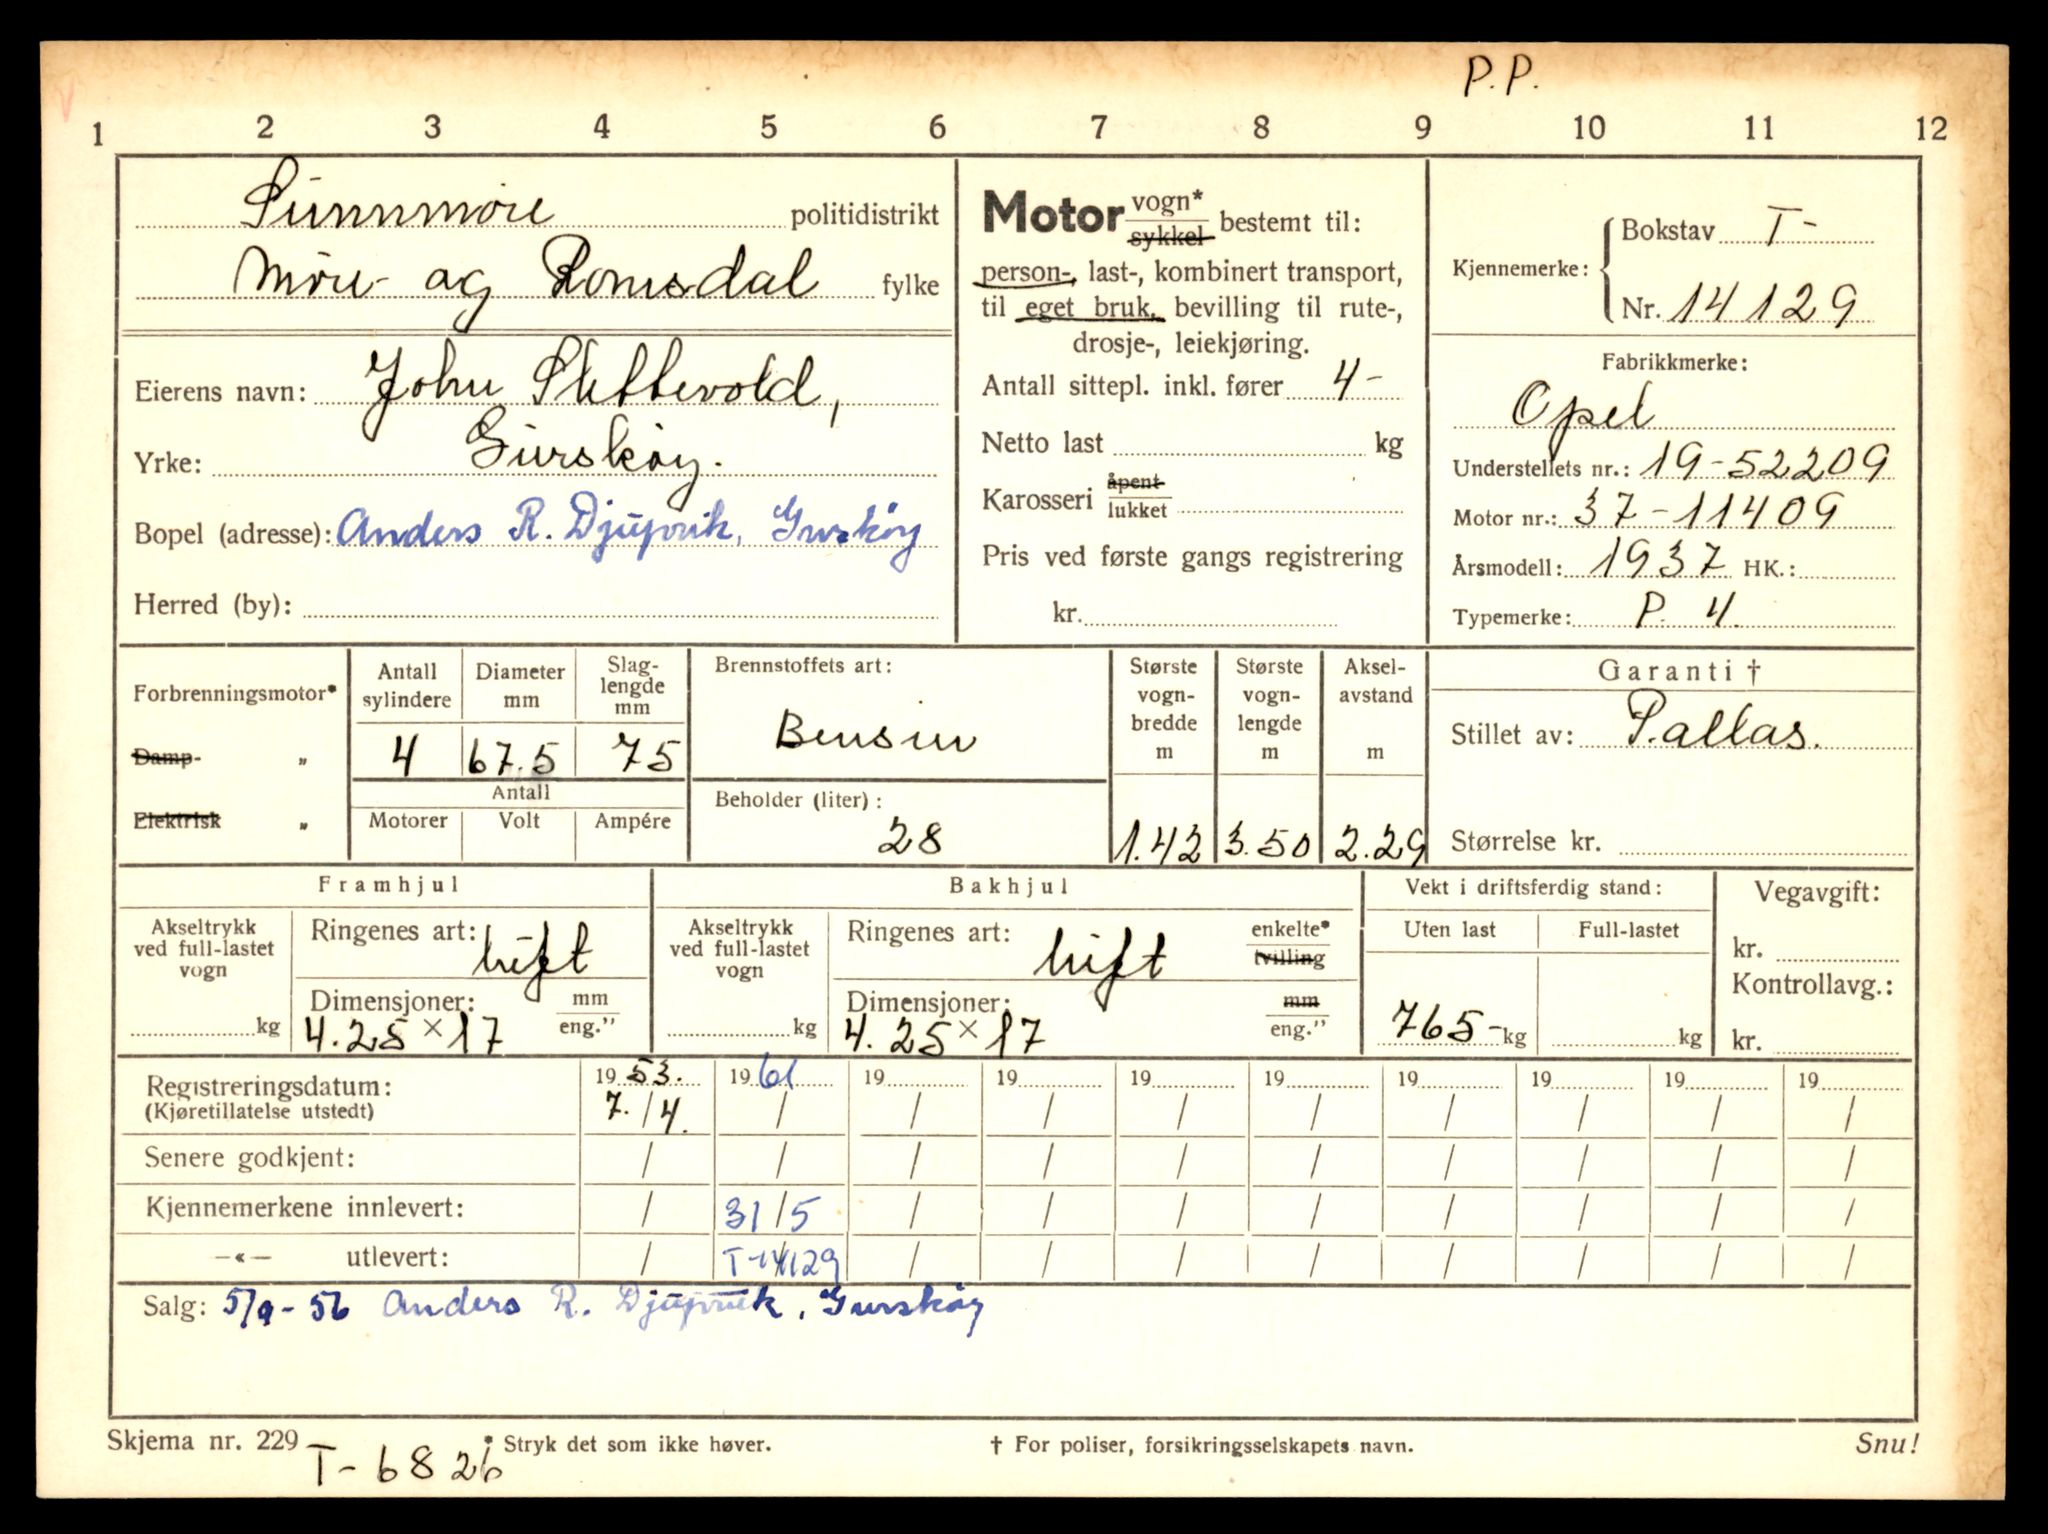 P.P.
1 2 3 4 5 6 7 8 9 10 11 12
Sunnmøre politidistrikt
Møre- og Romsdal fylke
Eierens navn: John Slettevold,
Yrke: Gurskøy.
Bopel (adresse): Anders R. Djupvik, Gurskøy
Herred (by):
Motor vogn* sykkel bestemt til:
person-, last-, kombinert transport,
til eget bruk, bevilling til rute-,
drosje-, leiekjøring.
Antall sittepl. inkl. fører 4-
Netto last kg
Karosseri åpent lukket
Pris ved første gangs registrering
kr.
Kjennemerke: Bokstav T-
Nr. 14129
Fabrikkmerke:
Opel
Understellets nr.: 19-52209
Motor nr.: 37-11409
Årsmodell: 1937 HK.:
Typemerke: P. 4.
Forbrenningsmotor*
Damp- „
Elektrisk „
Antall sylindere Diameter mm Slag-lengde mm
4 67.5 75
Antall
Motorer Volt Ampére
Brennstoffets art:
Bensin
Beholder (liter):
28
Største vogn-bredde m
1.42
Største vogn-lengde m
3.50
Aksel-avstand m
2.29
Garanti †
Stillet av: Pallas.
Størrelse kr.
Framhjul
Akseltrykk ved full-lastet vogn
kg
Ringenes art: luft
Dimensjoner: mm eng.”
4.25 × 17
Bakhjul
Akseltrykk ved full-lastet vogn
kg
Ringenes art: luft enkelte* tvilling
Dimensjoner: mm eng.”
4.25 × 17
Vekt i driftsferdig stand:
Uten last Full-lastet
765- kg kg
Vegavgift:
kr.
Kontrollavg.:
kr.
Registreringsdatum: 1953. 1961 19 19 19 19 19 19 19 19
(Kjøretillatelse utstedt) 7. / 4. / / / / / / / / /
Senere godkjent: / / / / / / / / / /
Kjennemerkene innlevert: / 31/5 / / / / / / / /
—«— utlevert: / T-14129 / / / / / / / /
Salg: 5/9-56 Anders R. Djupvik, Gurskøy
Skjema nr. 229 * Stryk det som ikke høver. † For poliser, forsikringsselskapets navn. Snu!
T-6826